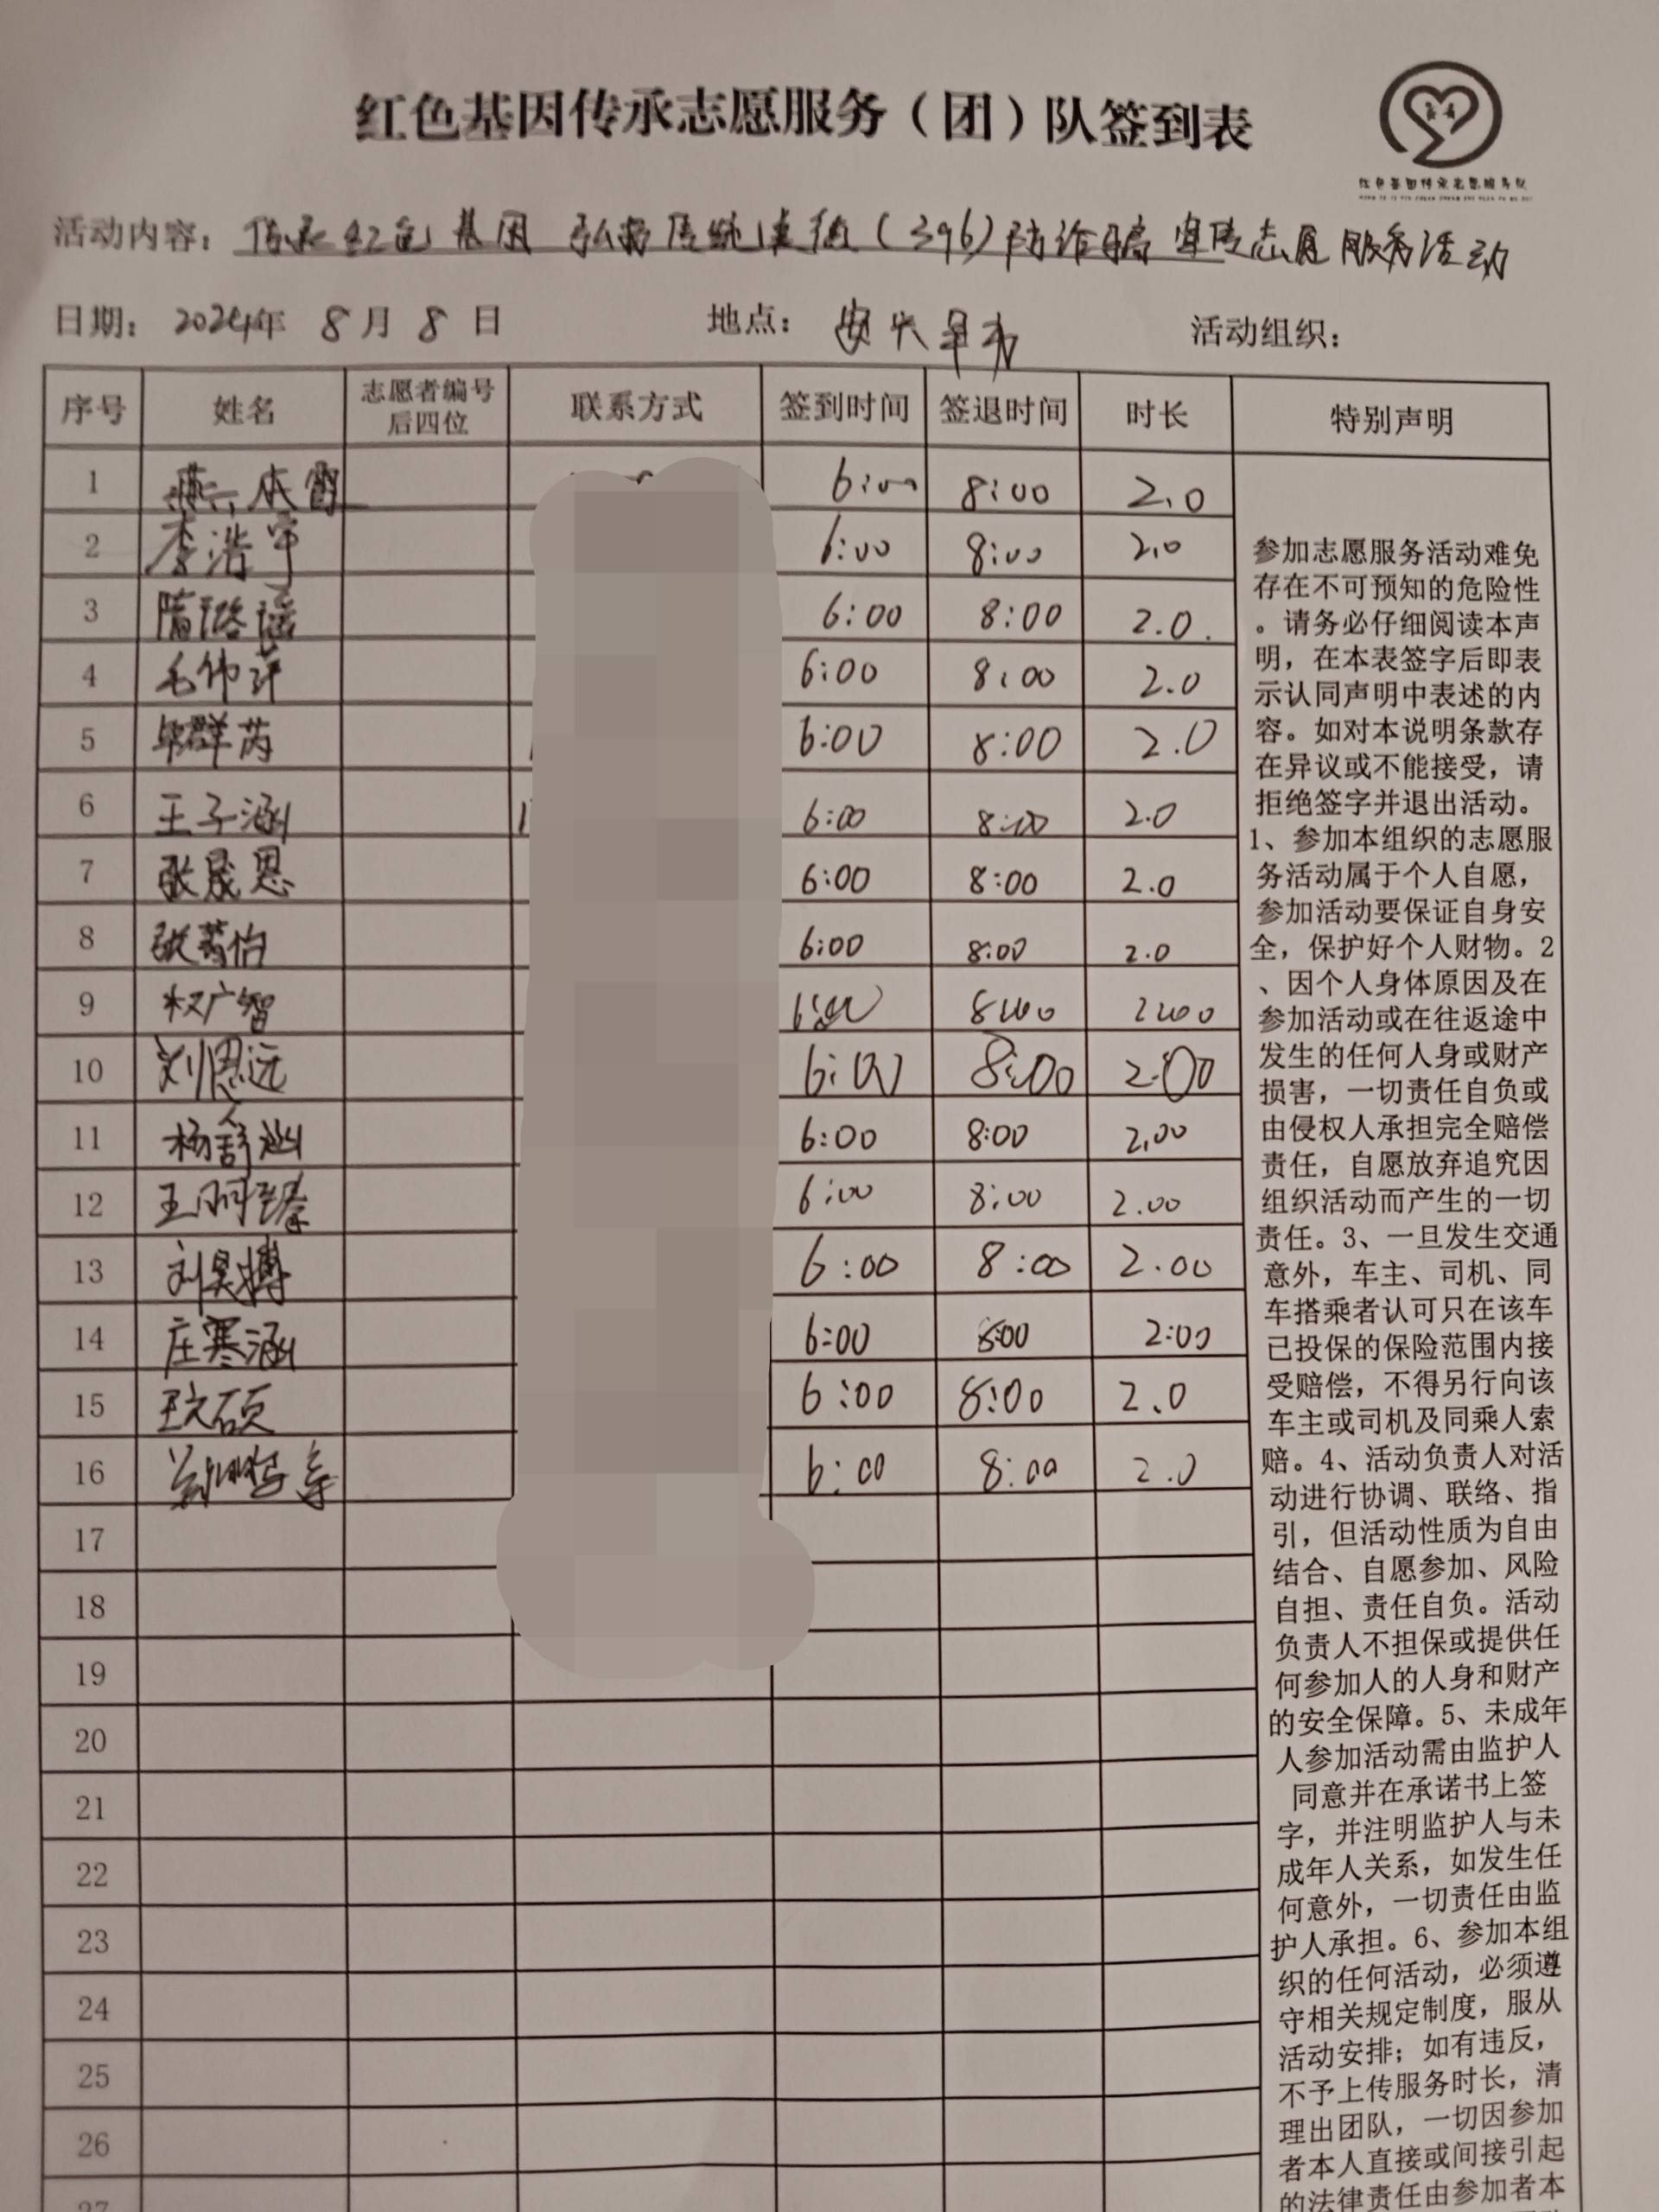 红色基因传承志愿服务（团）队签到表
红色基因传承志愿服务队
活动内容：传承红色基因 弘扬传统美德（396）防诈骗宣传志愿服务活动
日期：2024年 8月 8日 地点：安大早市 活动组织：
序号 姓名 志愿者编号后四位 联系方式 签到时间 签退时间 时长 特别声明
1 本 6:00 8:00 2.0
2 李浩宇 6:00 8:00 2.0
3 隋璐瑶 6:00 8:00 2.0.
4 毛伟 6:00 8:00 2.0
5 群芮 6:00 8:00 2.0
6 王子涵 6:00 8:00 2.0
7 张晟恩 6:00 8:00 2.0
8 张怡 6:00 8:00 2.0
9 权广智 6:00 8:00 2:00
10 刘恩远 6:00 8:00 2:00
11 杨舒 6:00 8:00 2.00
12 王 6:00 8:00 2.00
13 刘昊搏 6:00 8:00 2.00
14 庄寒涵 6:00 8:00 2:00
15 硕 6:00 8:00 2.0
16 6:00 8:00 2.0
17
18
19
20
21
22
23
24
25
26
27
参加志愿服务活动难免
存在不可预知的危险性
。请务必仔细阅读本声
明，在本表签字后即表
示认同声明中表述的内
容。如对本说明条款存
在异议或不能接受，请
拒绝签字并退出活动。
1、参加本组织的志愿服
务活动属于个人自愿，
参加活动要保证自身安
全，保护好个人财物。2
、因个人身体原因及在
参加活动或在往返途中
发生的任何人身或财产
损害，一切责任自负或
由侵权人承担完全赔偿
责任，自愿放弃追究因
组织活动而产生的一切
责任。3、一旦发生交通
意外，车主、司机、同
车搭乘者认可只在该车
已投保的保险范围内接
受赔偿，不得另行向该
车主或司机及同乘人索
赔。4、活动负责人对活
动进行协调、联络、指
引，但活动性质为自由
结合、自愿参加、风险
自担、责任自负。活动
负责人不担保或提供任
何参加人的人身和财产
的安全保障。5、未成年
人参加活动需由监护人
同意并在承诺书上签
字，并注明监护人与未
成年人关系，如发生任
何意外，一切责任由监
护人承担。6、参加本组
织的任何活动，必须遵
守相关规定制度，服从
活动安排；如有违反，
不予上传服务时长，清
理出团队，一切因参加
者本人直接或间接引起
的法律责任由参加者本